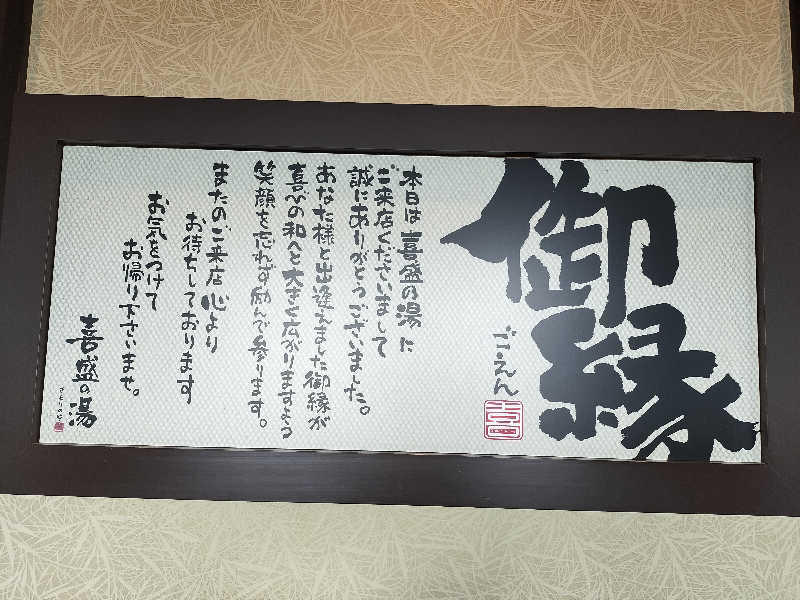 御縁
ごえん
喜
本日は 喜盛の湯 に
ご来店くださいまして
誠にありがとうございました。
あなた様と出逢えました御縁が
喜びの和へと大きく広がりますよう
笑顔を忘れず励んで参ります。
またのご来店 心より
お待ちしております
お気をつけて
お帰り下さいませ。
喜盛の湯